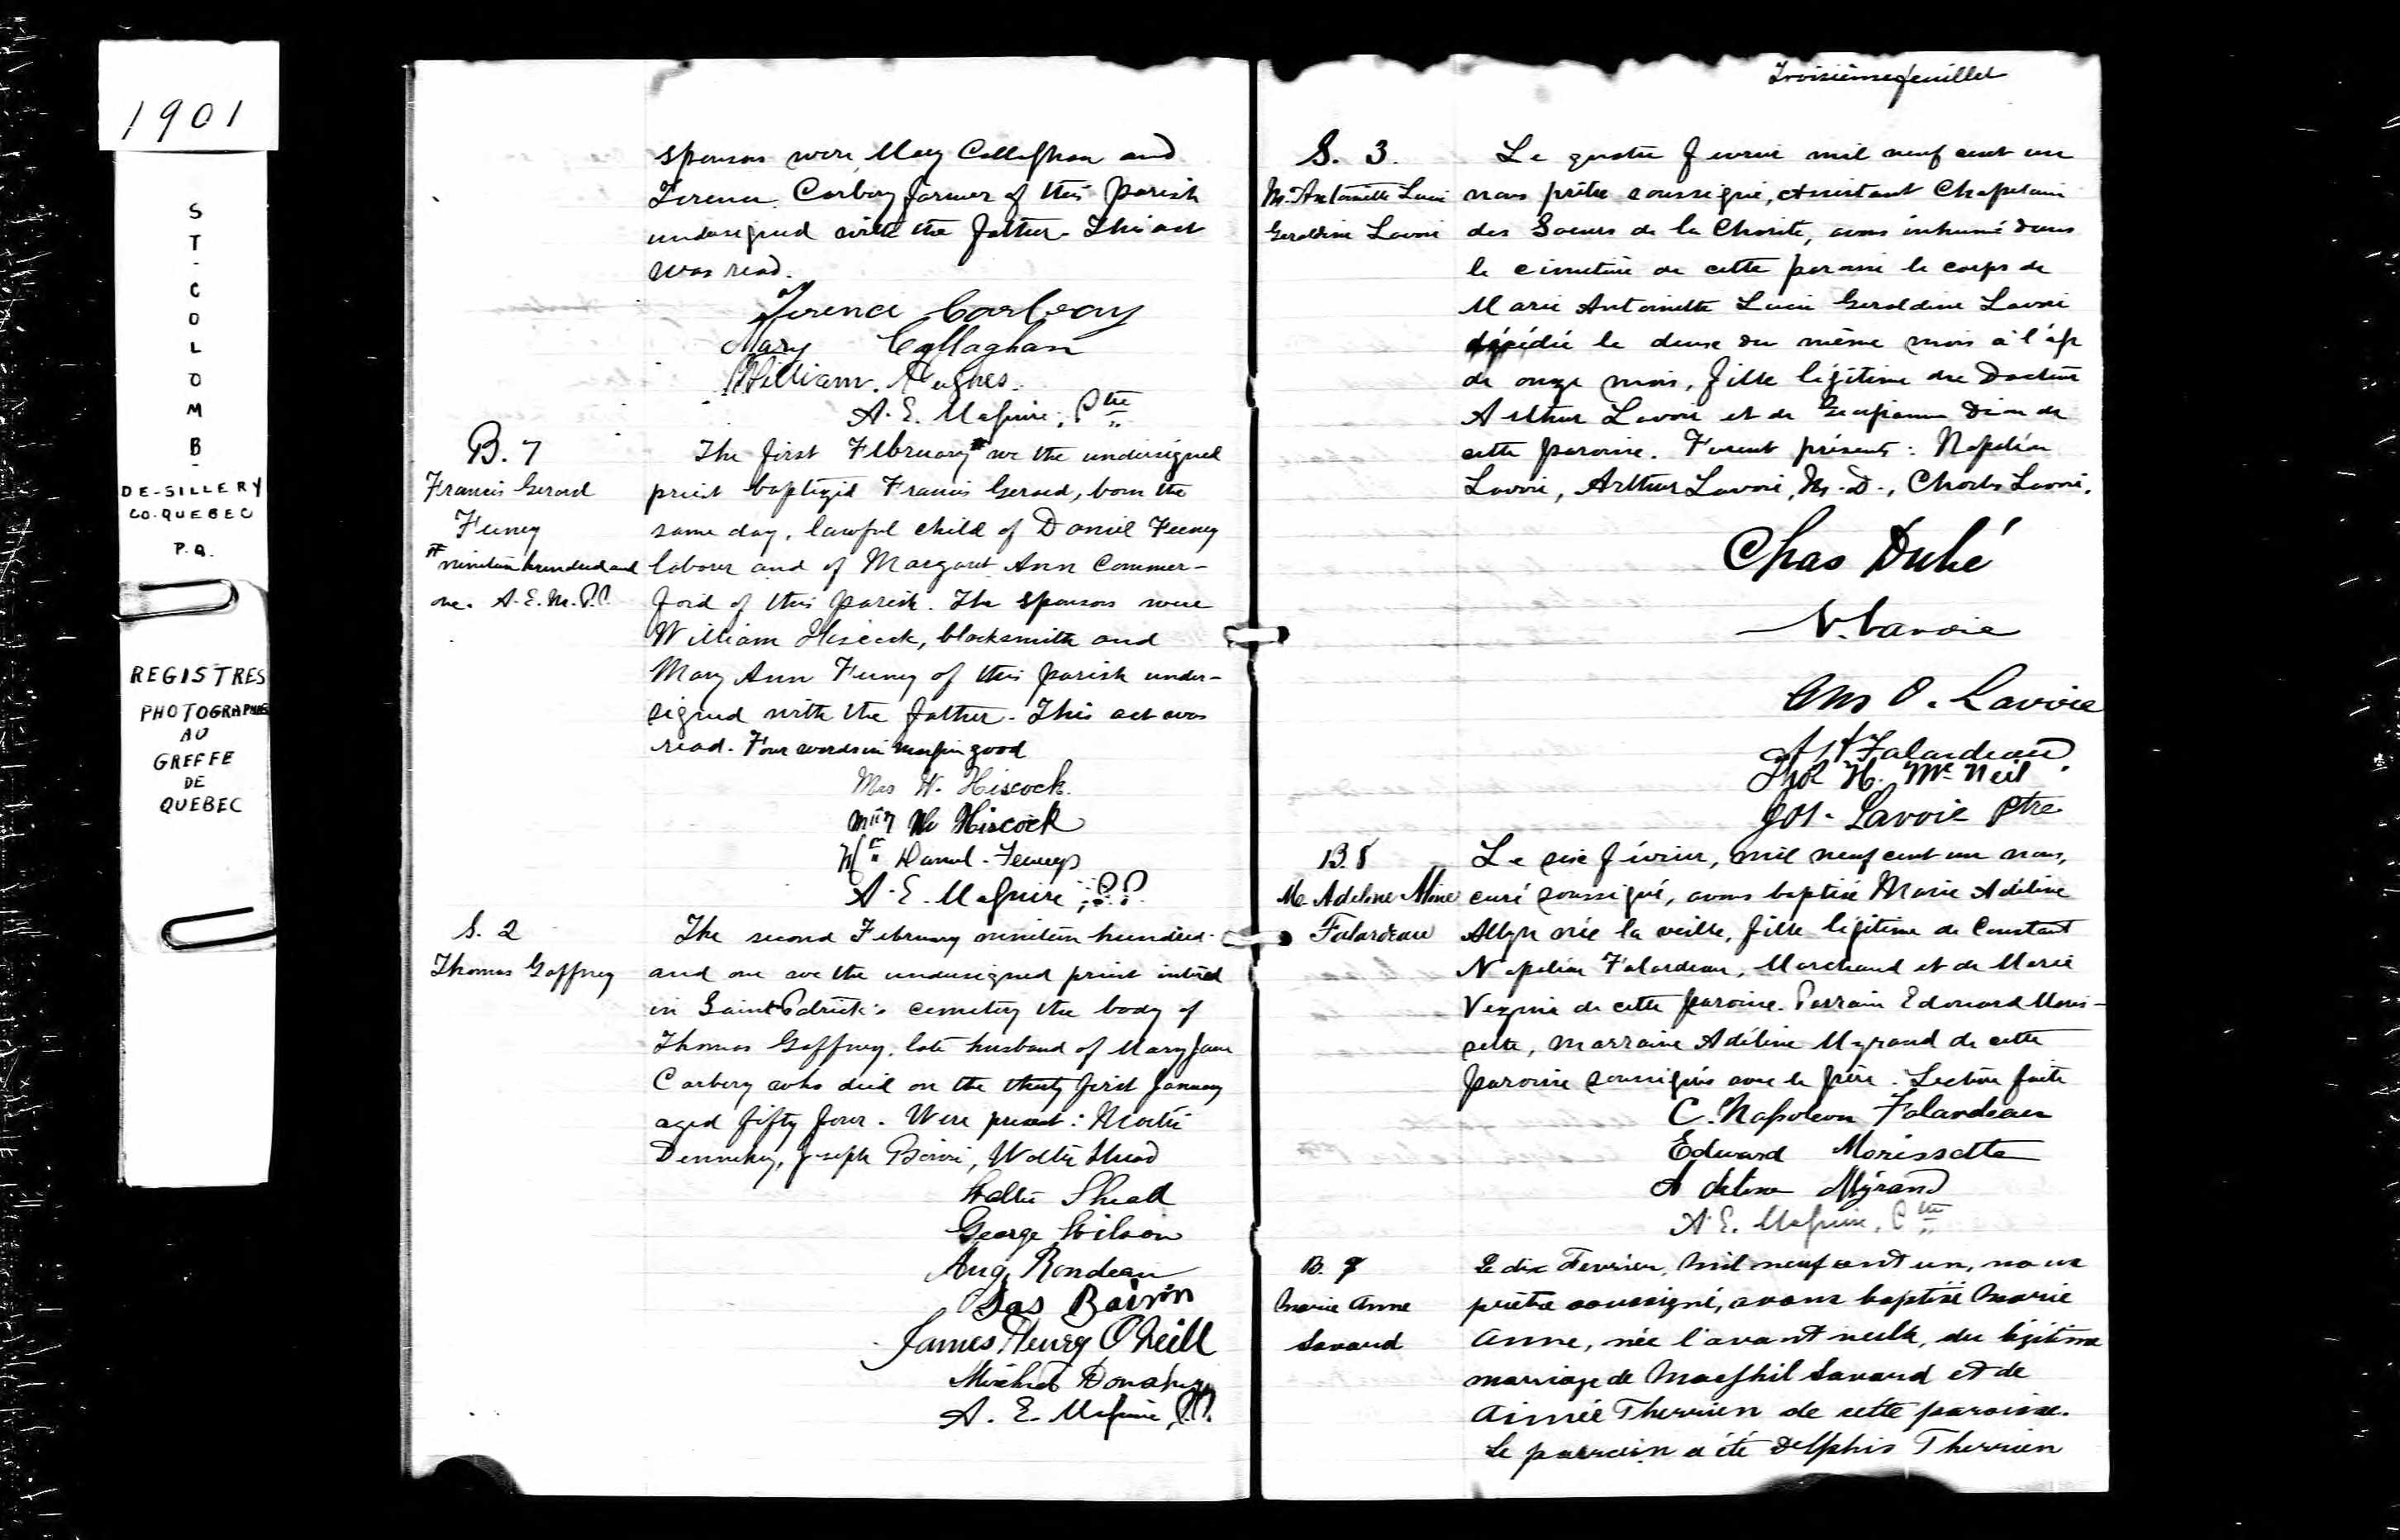 1901
ST-COLOMB-
DE-SILLERY
CO-QUEBEC
P.Q.
REGISTRES
PHOTOGRAPHIES
AU
GREFFE
DE
QUEBEC
sponsors were Mary Callaghan and
Terence Carbery farmer of this parish
undersigned with the father. This act
was read.
Terence Carbeary
Mary Callaghan
William Hughes
A. E. Maguire, Ptre
B. 7
Francis Gerard
Feeney
# nineteen hundred and
one. A. E. M. P.P.
The first February # we the undersigned
priest baptized Francis Gerard, born the
same day, lawful child of Daniel Feeney
labourer and of Margaret Ann Commer-
ford of this parish. The sponsors were
William Hiscock, blacksmith and
Mary Ann Feeney of this parish under-
signed with the father. This act was
read. Four words in margin good
Mrs W. Hiscock.
W Hiscock
Daniel Feeney
A. E. Maguire, P.P.
S. 2
Thomas Gaffney
The second February nineteen hundred
and one we the undersigned priest interred
in Saint Patrick's cemetery the body of
Thomas Gaffney, late husband of Mary Jane
Carbery who died on the thirty first January
aged fifty four. Were present: Martin
Dennehy, Joseph Boivin, Walter Shead
Walter Shead
George Wilson
Aug. Rondeau
Jos Boivin
James Henry O'Neill
Michael Donahue
A. E. Maguire, P.P.
Troisième feuillet
S. 3.
M. Antoinette Lucie
Geraldine Lavoie
Le quatre février mil neuf cent un
nous prêtre soussigné, Assistant Chapelain
des Soeurs de la Charité, avons inhumé dans
le cimetière de cette paroisse le corps de
Marie Antoinette Lucie Geraldine Lavoie
décédée le deux du même mois à l'âge
de onze mois, fille légitime du Docteur
Arthur Lavoie et de Georgianna Dion de
cette paroisse. Furent présents: Napoléon
Lavoie, Arthur Lavoie, M.D., Charles Lavoie.
Chas Dubé
N. Lavoie
O. Lavoie
Falardeau
H. Mc Neil
Jos. Lavoie Ptre
B. 8
M. Adeline Aline
Falardeau
Le six février, mil neuf cent un nous,
curé soussigné, avons baptisé Marie Adéline
née la veille, fille légitime de Constant
Napoléon Falardeau, Marchand et de Marie
Vezina de cette paroisse. Parrain Edouard Moris-
sette, marraine Adéline Myrand de cette
paroisse soussignés avec le père. Lecture faite
C. Napoleon Falardeau
Edward Morissette
Adeline Myrand
A. E. Maguire, Ptre
B. 9
Marie Anne
Savard
Le dix Fevrier, mil neuf cent un, nous
prêtre soussigné, avons baptisé Marie
Anne, née l'avant veille, du légitime
mariage de Savard et de
Aimée Therrien de cette paroisse.
Le parrain a été Delphis Therrien